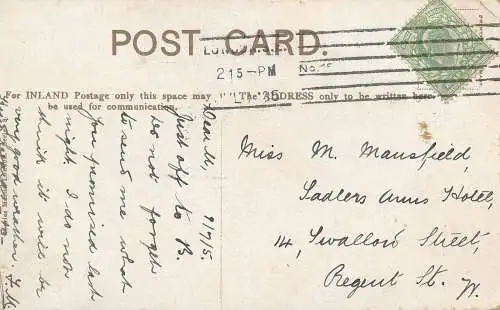 POST CARD.
LONDON
2 15-PM
No.
For INLAND Postage only this space may
be used for communication.
The ADDRESS only to be written here.
9/7/5.
Dear M,
Just off to B.
Do not forget
to send me what
you promised last
night. I do not
think it will be
very good weather.
Miss M. Mansfield,
Sadlers Arms Hotel,
14, Swallow Street,
Regent St. W.